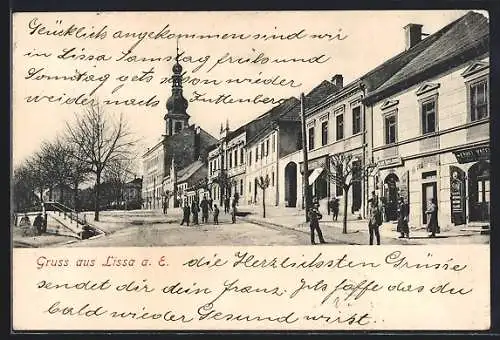 Glücklich angekommen sind wir
in Lissa Samstag früh und
Sonntag gets schon wieder
weider nach Kuttenberg
Gruss aus Lissa a. E.
die Herzlichsten Grüsse
sendet dir dein franz. Jets hoffe das du
bald wieder Gesund wirst..